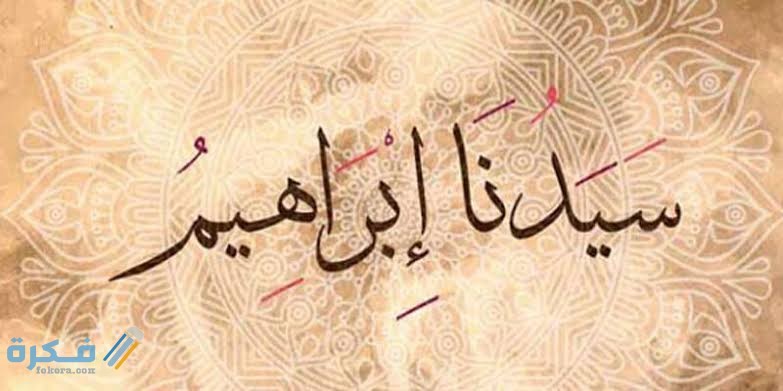 سَيَدُنَا إِبْرَاهِيمُ
فكرة
fekera.com